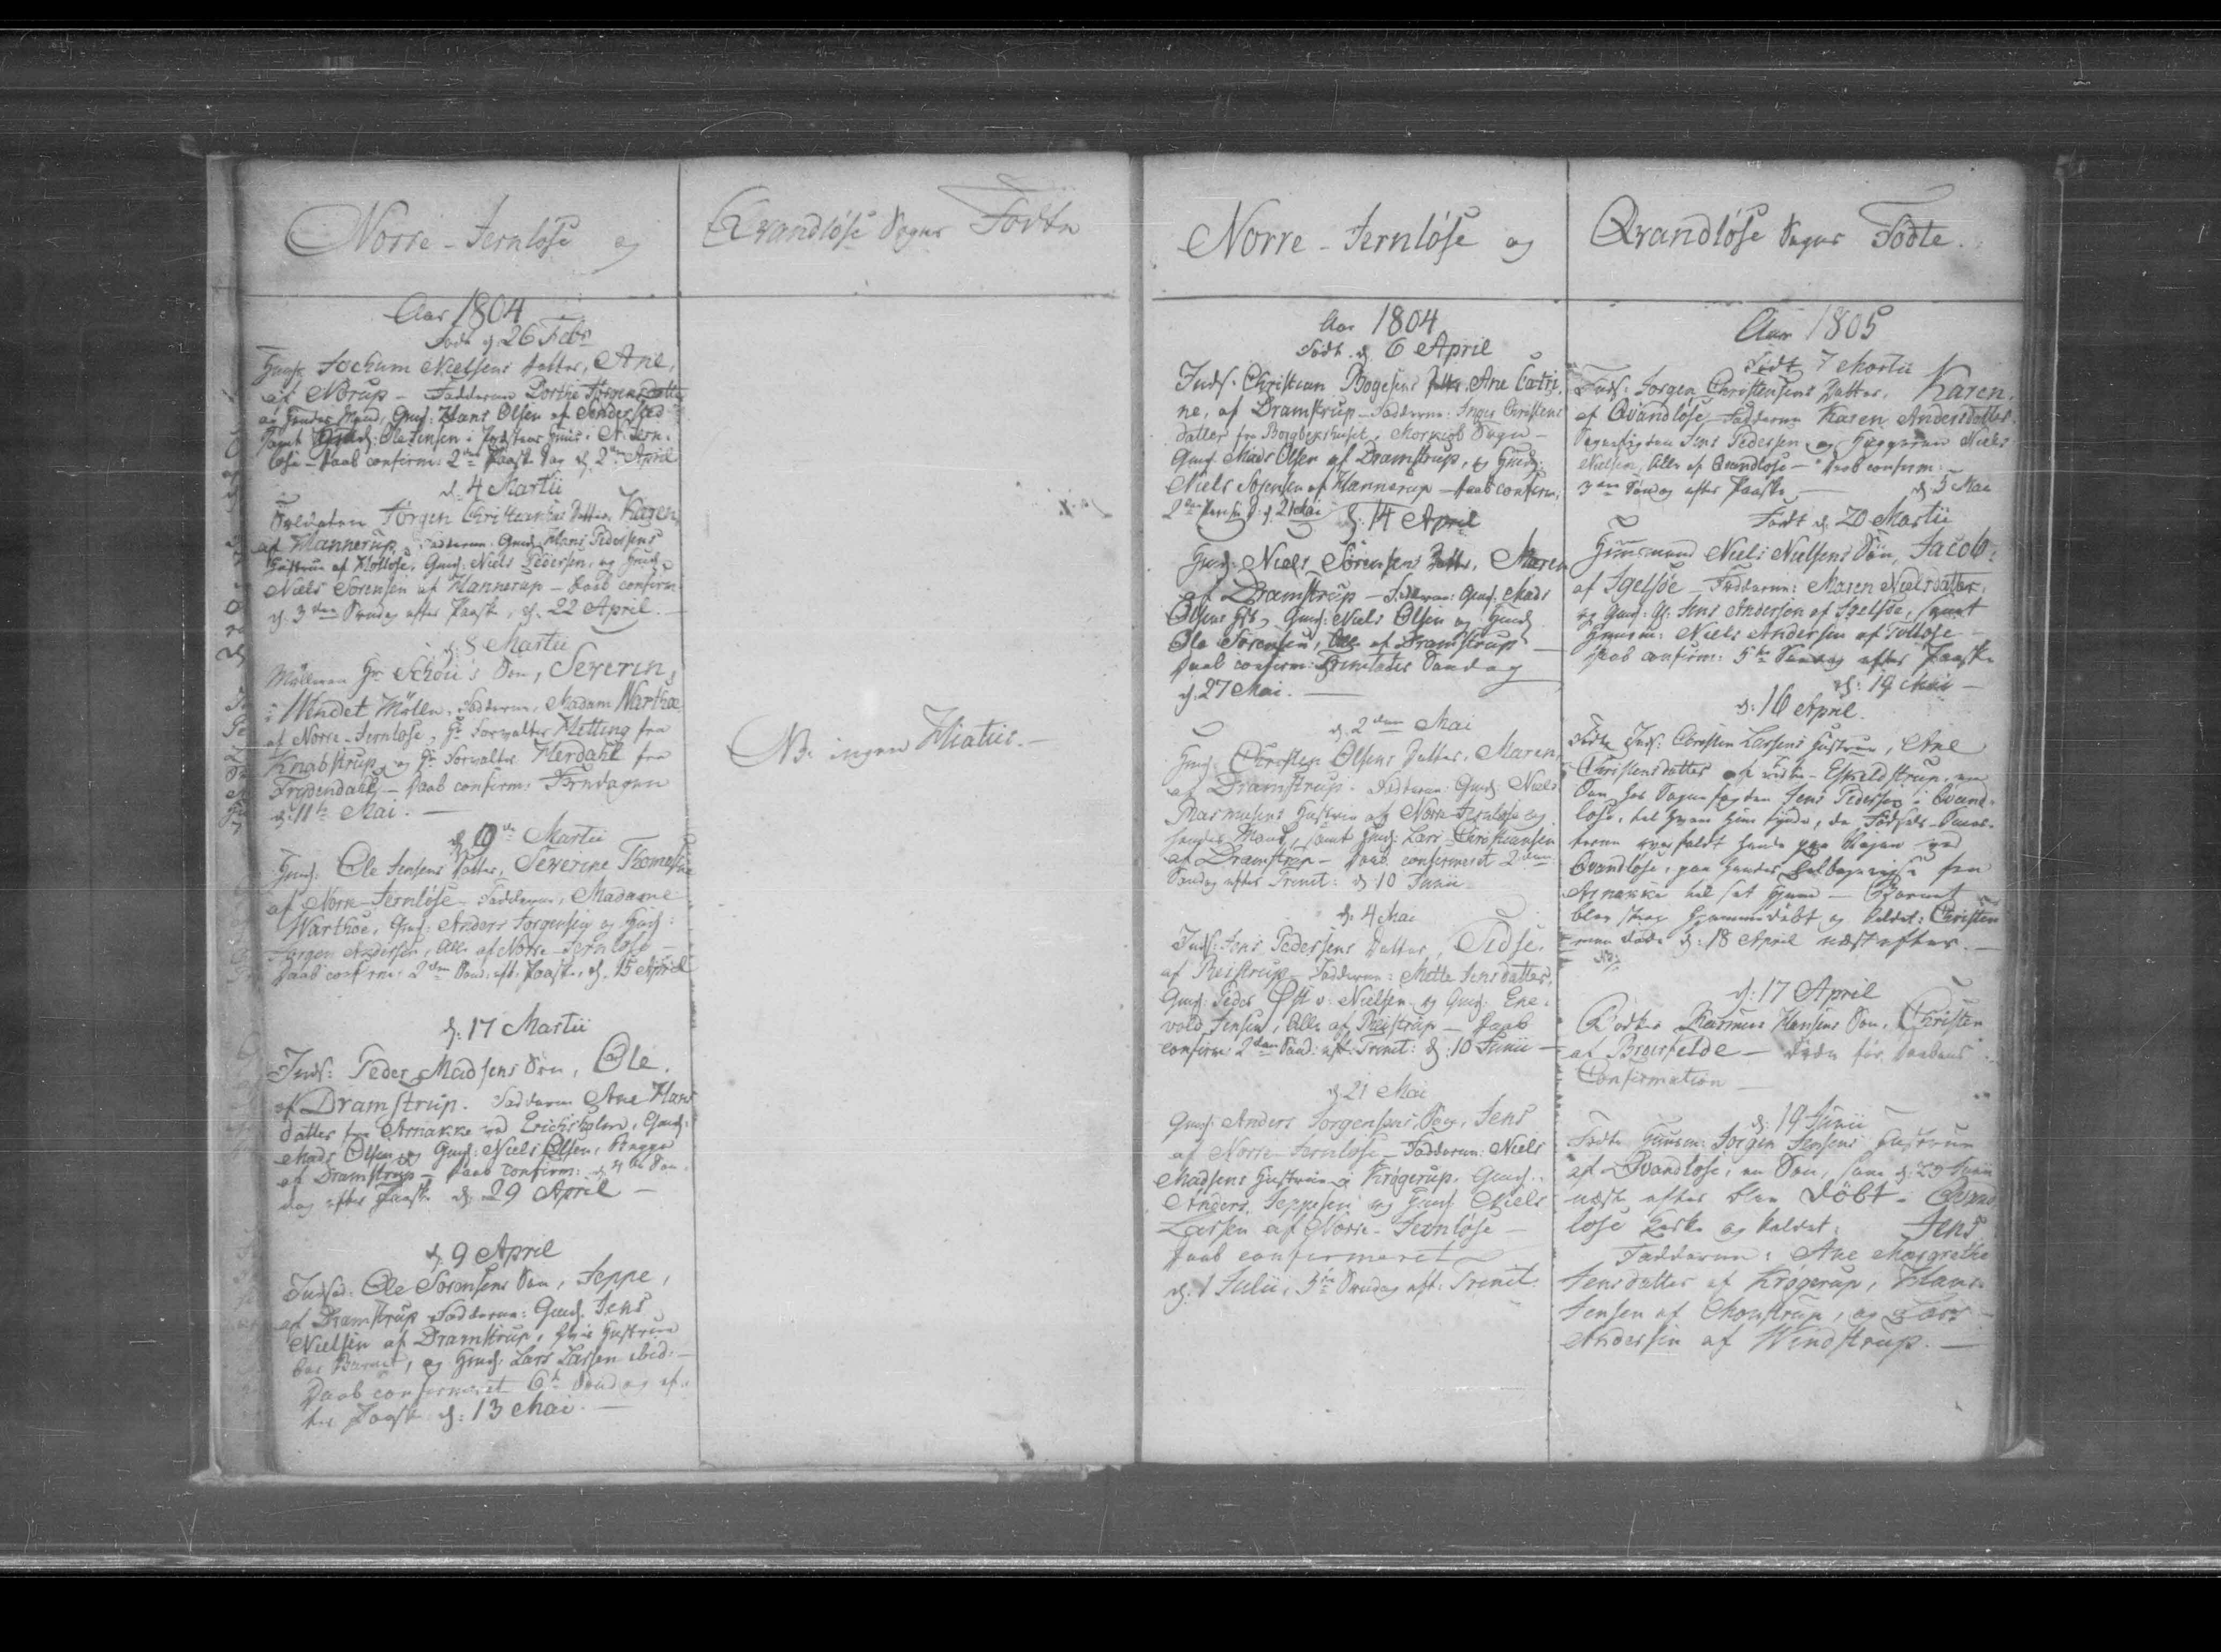 Norre-Jernløse og
Qvandløse Sogns Födte
Aar 1804
Född d. 26 Febr
Gmd. Jochum Nielsens Datter, Ane,
af Nörup - Fadderne Dorthe Jörgensdatter
og hendes Mand, Gmd: Hans Olsen af Sönderstad
samt Ole Jensen i Huus i N. Jern-
løse - Daab confirm: 2den Paaske Dag d. 2den April
d. 4 Martii
Soldaten Jörgen Christensens Datter, Karen,
af Hannerup, Fadderne Gmd. Hans Pedersens
Hustrue af Holløse, Gmd: Niels Pedersen, og Huusm.
Niels Sörensen af Hannerup - Daab confirm
d. 3den Söndag efter Paaske, d. 22 April.
d: 8 Martii
Mölleren Hr Schöu's Sön, Severin,
i Vendet Mölle, Fadderne, Madam Warthoe
af Norre-Jernløse, Hr Forvalter Hetting fra
Knabstrup, og Hr Forvalter Herdahl fra
Frydendahl - Daab confirm: Bededagen
d: 11te Mai.
d. 9de Martii
Gmd: Ole Jensens Datter, Severine Thomesine
af Norre-Jernløse - Fadderne, Madame
Warthoe, Gmd: Anders Jorgensen og Gmd:
Jorgen Andersen, Alle af Norre-Jernløse -
Daab confirm: 2den Sönd: eft: Paaske, d. 15 April
d: 17 Martii
Inds: Peder Madsens Sön, Ole,
af Dramstrup. Fadderne Ane Hans
datter fra Arnakke ved Erichsholm, Gmd:
Mads Olsen og Gmd: Niels Olsen, begge
af Dramstrup - Daab confirm: d. 4de Sön-
dag efter Paaske d: 29 April -
d. 9 April
Indsd: Ole Sorensens Sön, Jeppe,
af Dramstrup Fadderne: Gmd. Jens
Nielsen af Dramstrup, hvis Hustrue
bar Barnet, og Gmd: Lars Larsen ibid: -
Daab confirmeret 6te Söndag ef-
ter Paaske d: 13 Mai.
NB. ingen Hiatus. -
Norre-Jernløse og
Qvandløse Sogns Födte.
Aar 1804
Född d. 6 April
Inds: Christian Bogesens Datter, Ane Catri-
ne, af Dramstrup - Fadderne: Inger Christens
datter fra Borgbierhuset i Morkiøb Sogn -
Gmd. Mads Olsen af Dramstrup, og Gmd:
Niels Sorensen af Hannerup - Daab confirm.
2den Pintse D. d. 21 Mai
d: 14 April
Gmd: Niels Sörensens Datter, Maren
af Dramstrup - Fadderne: Gmd. Mads
Olsens Hst, Gmd: Niels Olsen og Gmd
Ole Sorensen, Alle af Dramstrup
Daab confirm: Trinitatis Söndag
d. 27 Mai.
d. 2den Mai
Gmd: Christen Olsens Datter, Maren,
af Dramstrup. Fadderne: Gmd: Niels
Rasmusens Hustrue af Norre-Jernløse og
hendes Mand, samt Gmd: Lars Christiansen
af Dramstrup - Daab confirmeret 2den
Söndag efter Trinit: d 10 Junii
d: 4 Mai
Inds: Jens Pedersens Datter, Sidse,
af Reistrup - Fadderne: Mette Jensdatter,
Gmd: Peder Nielsen og Gmd: Ene-
vold Jensen, Alle af Reistrup - Daab
confirm 2den Sönd: eft: Trinit: d: 10 Junii -
d 21 Mai
Gmd: Anders Jorgensens Sön, Jens
af Norre-Jernløse - Fadderne: Niels
Madsens Hustrue i Krøgerup, Gmd:
Anders Jeppesen og Gmd Niels
Larsen af Norre-Jernløse -
Daab confirmeret
d. 1 Julii, 5te Söndag eft: Trinit:
Aar 1805
Född 7 Martii
Inds: Jorgen Christensens Datter, Karen,
af Qvandløse - Fadderne Karen Andersdatter
Sognefogden Jens Pedersen, og Niels
Nielsen, Alle af Qvandløse - Daab confirm:
3die Söndag efter Paaske d. 5 Mai
Född d. 20 Martii
Huusmand Niels Nielsens Sön, Jacob,
af Igelsöe - Fadderne: Maren Nielsdatter,
og Gmd: Jens Andersen af Igelsöe, samt
Huusm: Niels Andersen af Tølløse -
Daab confirm: 5te Söndag efter Paaske
d: 19 Mai -
d: 16 April.
Fødte Inds: Christen Larsens Hustrue, Ane
Christensdatter af Eskildstrup, en
Sön hos Sognefogden Jens Pedersen i Qvand-
løse, til hvem hun tyede, da Födsels-Smer-
terne overfaldt hende paa Vejen ved
Qvandløse, paa hendes fra
Arnakke til sit Hjem - Barnet
blev strax hjemmedöbt og kaldet: Christen
men døde d: 18 April næst efter. -
d: 17 April
Bödker Rasmus Hansens Sön, Christen
af Brorfelde - döde för Daabens
Confirmation -
d: 19 Junii
Födte Huusm: Jorgen Jensens Hustrue
af Qvandløse, en Sön, som d: 29 Junii
næst efter blev döbt i Qvand-
løse Kirke og kaldet: Jens
Fadderne: Ane Margrethe
Jensdatter af Krøgerup, Hans
Jensen af Monstrup, og Lars
Andersen af Windstrup. -